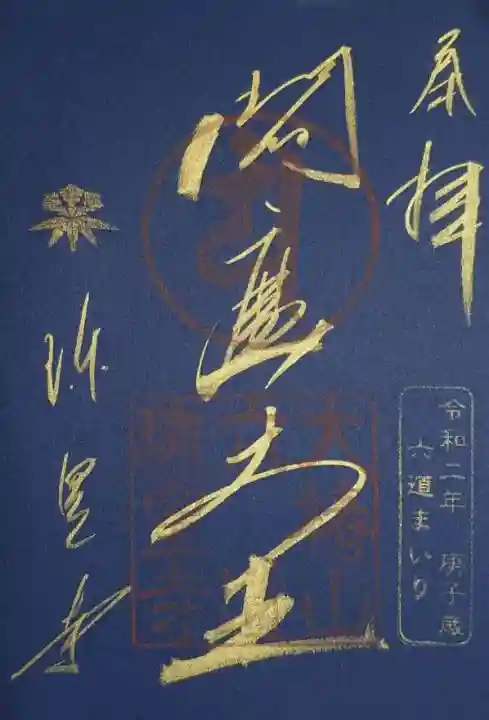 奉拝
令和二年 庚子歳
六道まいり
閻魔大王
大椿山
珍皇寺